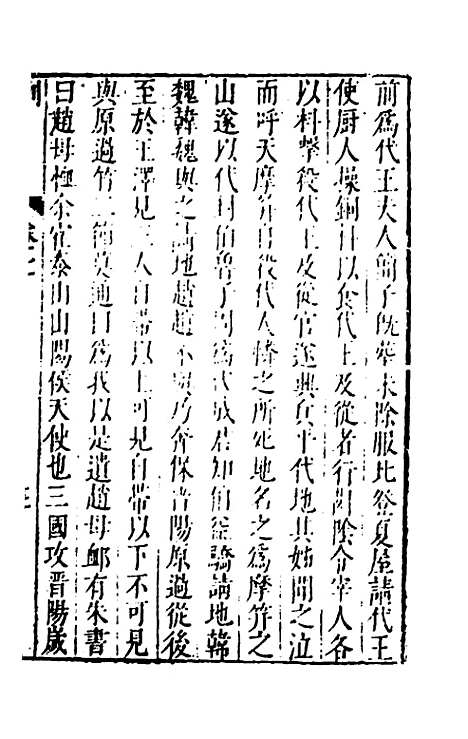 前爲代王夫人簡子既葬未除服北登夏屋請代王
使厨人操銅枓以食代王及從者行斟陰令宰人各
以枓擊殺代王及從官遂興兵平代地其姊聞之泣
而呼天摩笄自殺代人憐之所死地名之爲摩笄之
山遂以代封伯魯子周爲代成君知伯益驕請地韓
魏韓魏與之請地趙趙不與乃奔保晉陽原過從後
至於王澤見三人自帶以上可見自帶以下不可見
與原過竹二節莫通曰爲我以是遺趙母卹有朱書
曰趙母恤余霍泰山山陽侯天使也三國攻晉陽歲